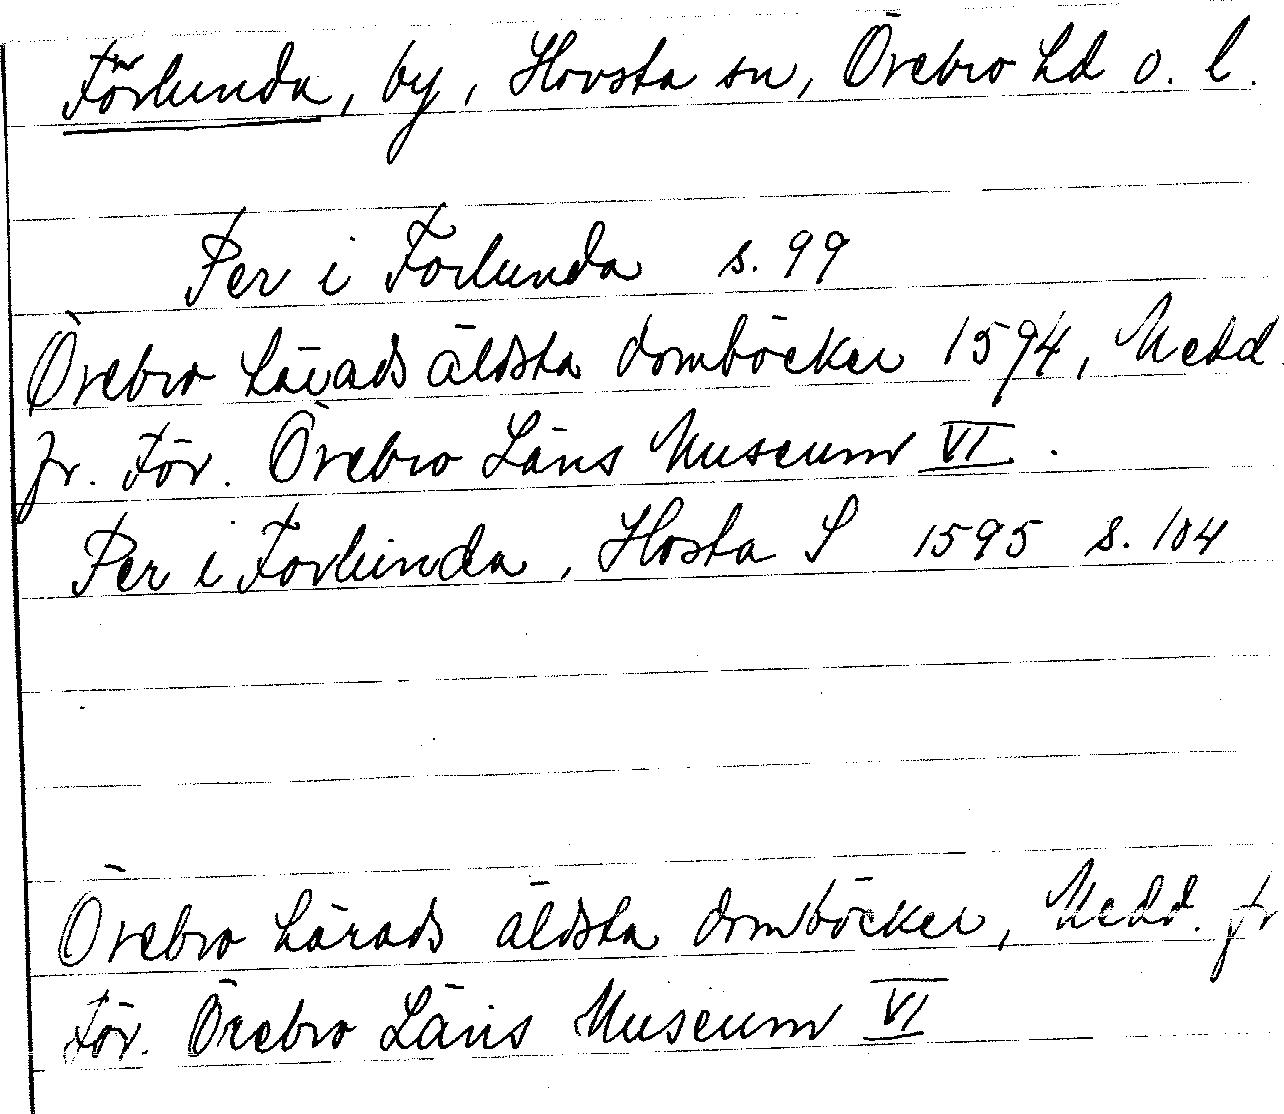 Förlunda, by, Hovsta sn, Örebro hd o. l.
Per i Forlunda s. 99
Örebro härads äldsta domböcker 1594, Medd.
fr. För. Örebro Läns Museum VI.
Per i Forlunda, Hosta S 1595 s. 104
Örebro härads äldsta domböcker, Medd. fr
För. Örebro Läns Museum VI